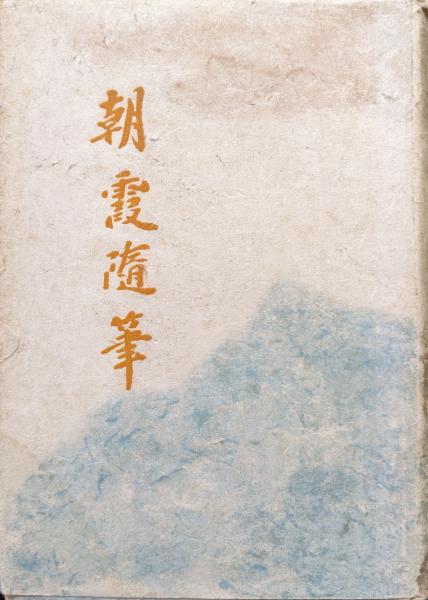 朝霞隨筆